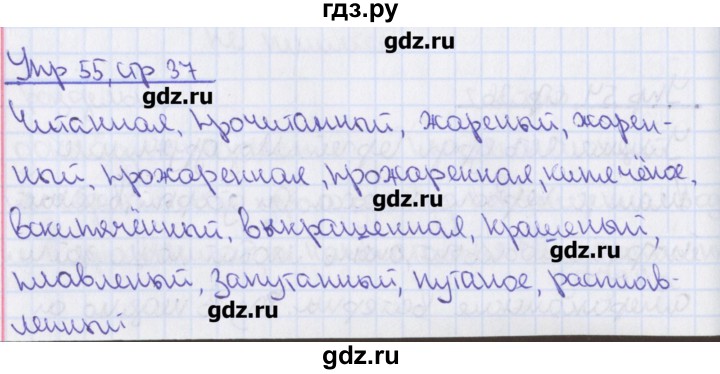 гдз.ру
gdz.ru
Упр 55, стр 37
gdz.ru
Читанная, прочитанный, жареный, жарен-
ный, прожаренная, прожаренная, кипечёное,
gdz.ru
вскипячённый, выкрашенная, крашеный,
gdz.ru
плавленый, запутанный, путаное, расплав-
gdz.ru
ленный
gdz.ru